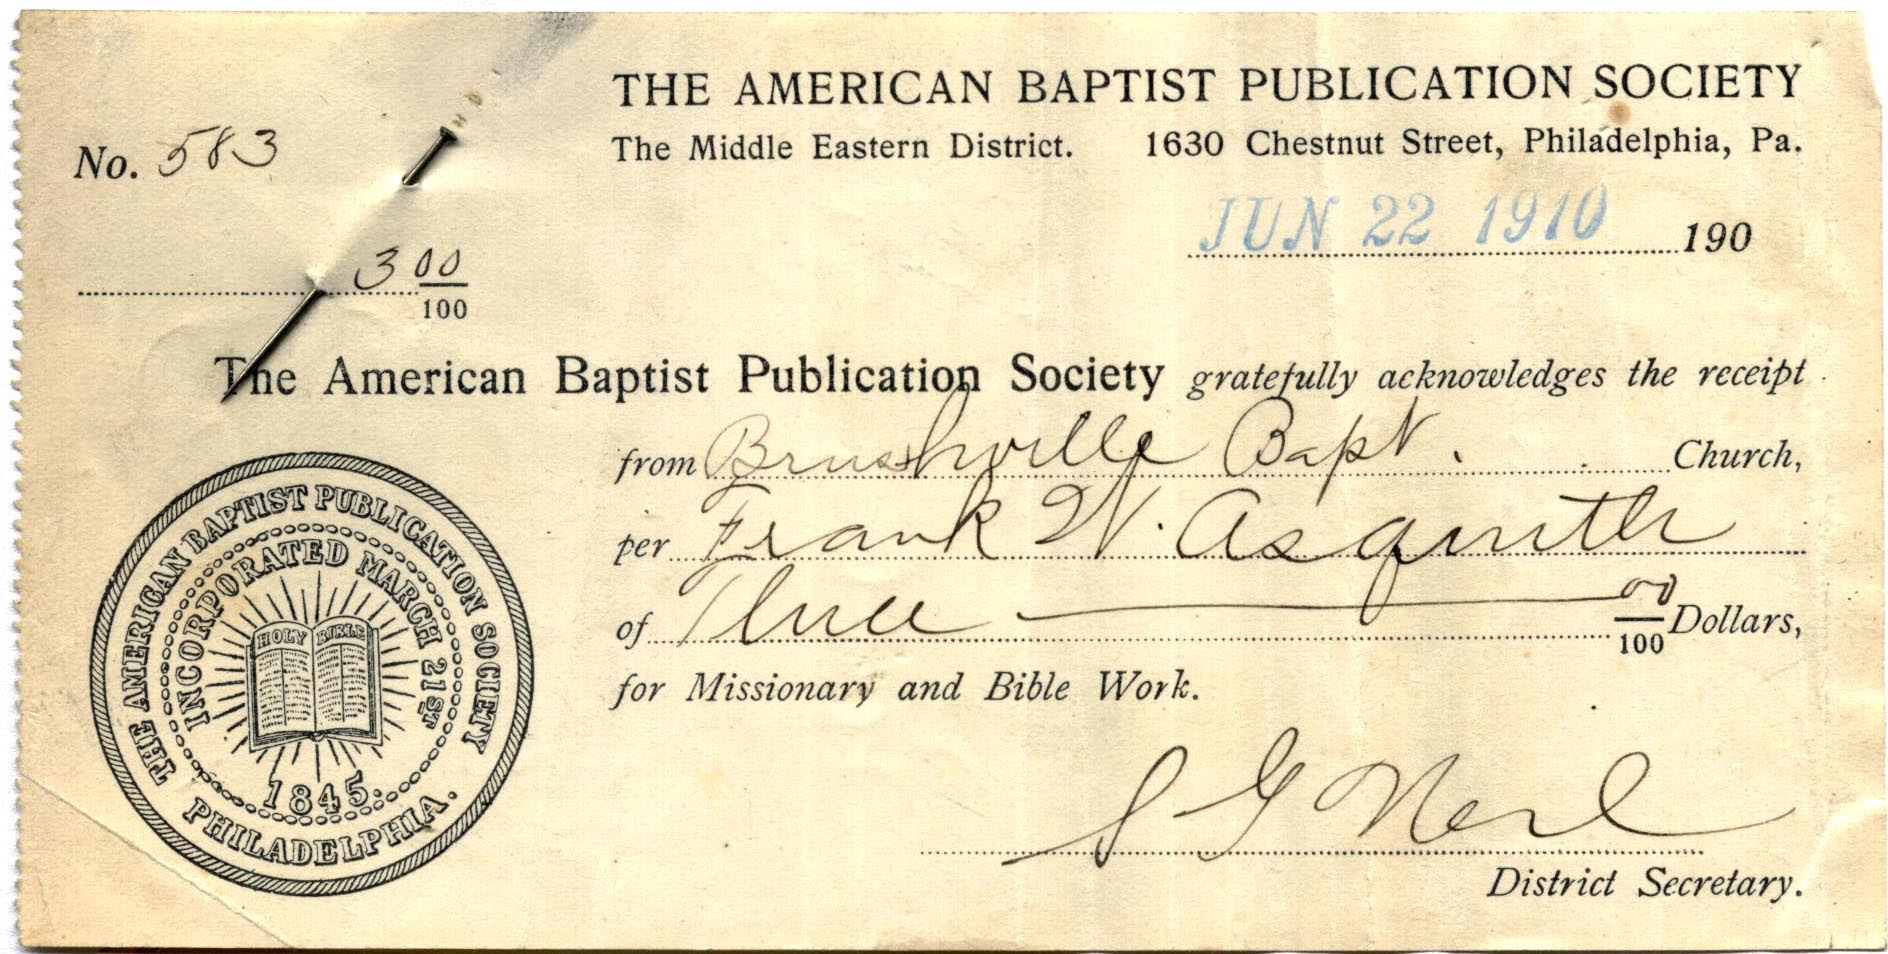 THE AMERICAN BAPTIST PUBLICATION SOCIETY
The Middle Eastern District. 1630 Chestnut Street, Philadelphia, Pa.
No. 583
JUN 22 1910 190
3 00/100
The American Baptist Publication Society gratefully acknowledges the receipt
from Brushville Bapt. Church,
per Frank W. Asquith
of Three 00/100 Dollars,
for Missionary and Bible Work.
THE AMERICAN BAPTIST PUBLICATION SOCIETY
INCORPORATED MARCH 21ST
HOLY BIBLE
1845.
PHILADELPHIA.
S G Neil
District Secretary.